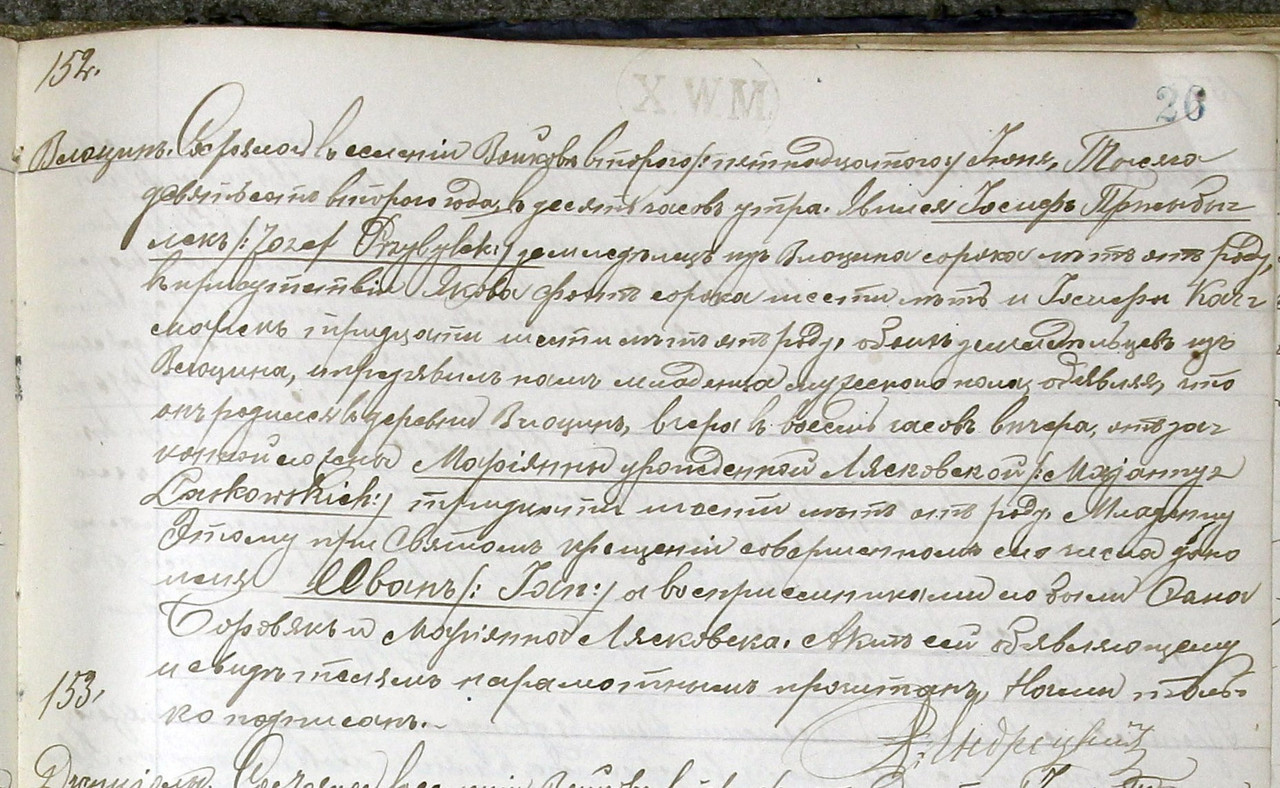 152.
X.W.M
26
Влощинъ. Состоялось въ селеніи Войковѣ второго /: пятнадцатого :/ Іюня, Тысяча
девятьсотъ второго года, въ десять часовъ утра. Явился Іосифъ Пржибы-
лекъ /: Józef Przybyłek :/ земледѣлецъ изъ Влощина сорока лѣтъ отъ роду,
въ присутствіи Якова сорока шести лѣтъ и Іосифа Кач-
марекъ тридцати шести лѣтъ отъ роду, обоихъ земледѣльцевъ изъ
Влощина, и предъявилъ намъ младенца мужескаго пола, объявляя, что
онъ родился въ деревни Влощинъ, вчера въ восемь часовъ вечера, отъ за-
конной его жены Маріянны урожденной Лясковской /: Maryanny z
Laskowskich :/ тридцати шести лѣтъ отъ роду. Младенцу
этому при Святомъ крещеніи совершенномъ сего числа дано
имя Иванъ /: Jan :/ а воспріемниками его были
Боровякъ и Маріянна Лясковска. Актъ сей объявляющему
и свидѣтелямъ неграмотнымъ прочитанъ, Нами толь-
153.
ко подписанъ.
Состоялось въ селеніи